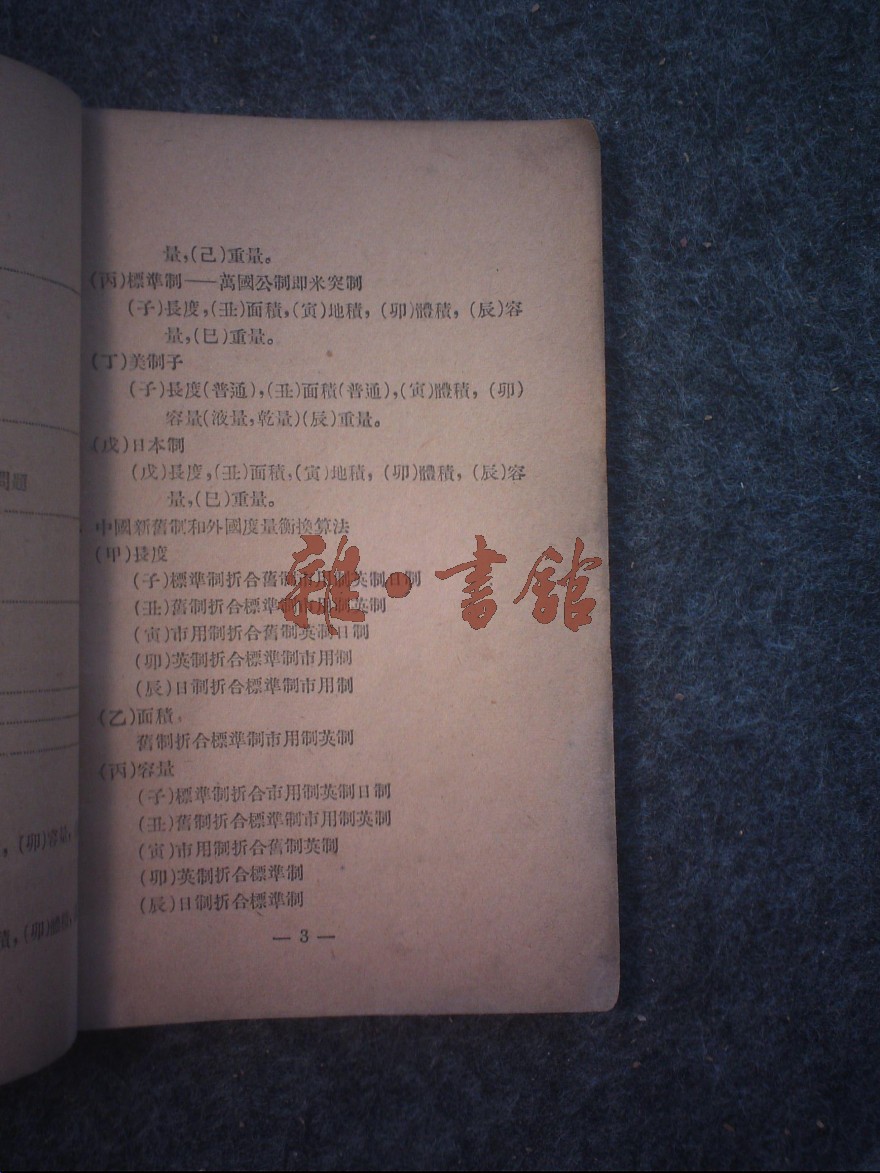 量,(己)重量。
(丙)標準制——萬國公制即米突制
(子)長度,(丑)面積,(寅)地積,(卯)體積,(辰)容
量,(巳)重量。
(丁)美制子
(子)長度(普通),(丑)面積(普通),(寅)體積,(卯)
容量(液量,乾量)(辰)重量。
(戊)日本制
(戊)長度,(丑)面積,(寅)地積,(卯)體積,(辰)容
量,(巳)重量。
中國新舊制和外國度量衡換算法
(甲)長度
(子)標準制折合舊制市用制英制日制
(丑)舊制折合標準制市用制英制
(寅)市用制折合舊制英制日制
(卯)英制折合標準制市用制
(辰)日制折合標準制市用制
(乙)面積
舊制折合標準制市用制英制
(丙)容量
(子)標準制折合市用制英制日制
(丑)舊制折合標準制市用制英制
(寅)市用制折合舊制英制
(卯)英制折合標準制
(辰)日制折合標準制
— 3 —
問題
,(卯)容量,
積,(卯)體積,
雜·書館